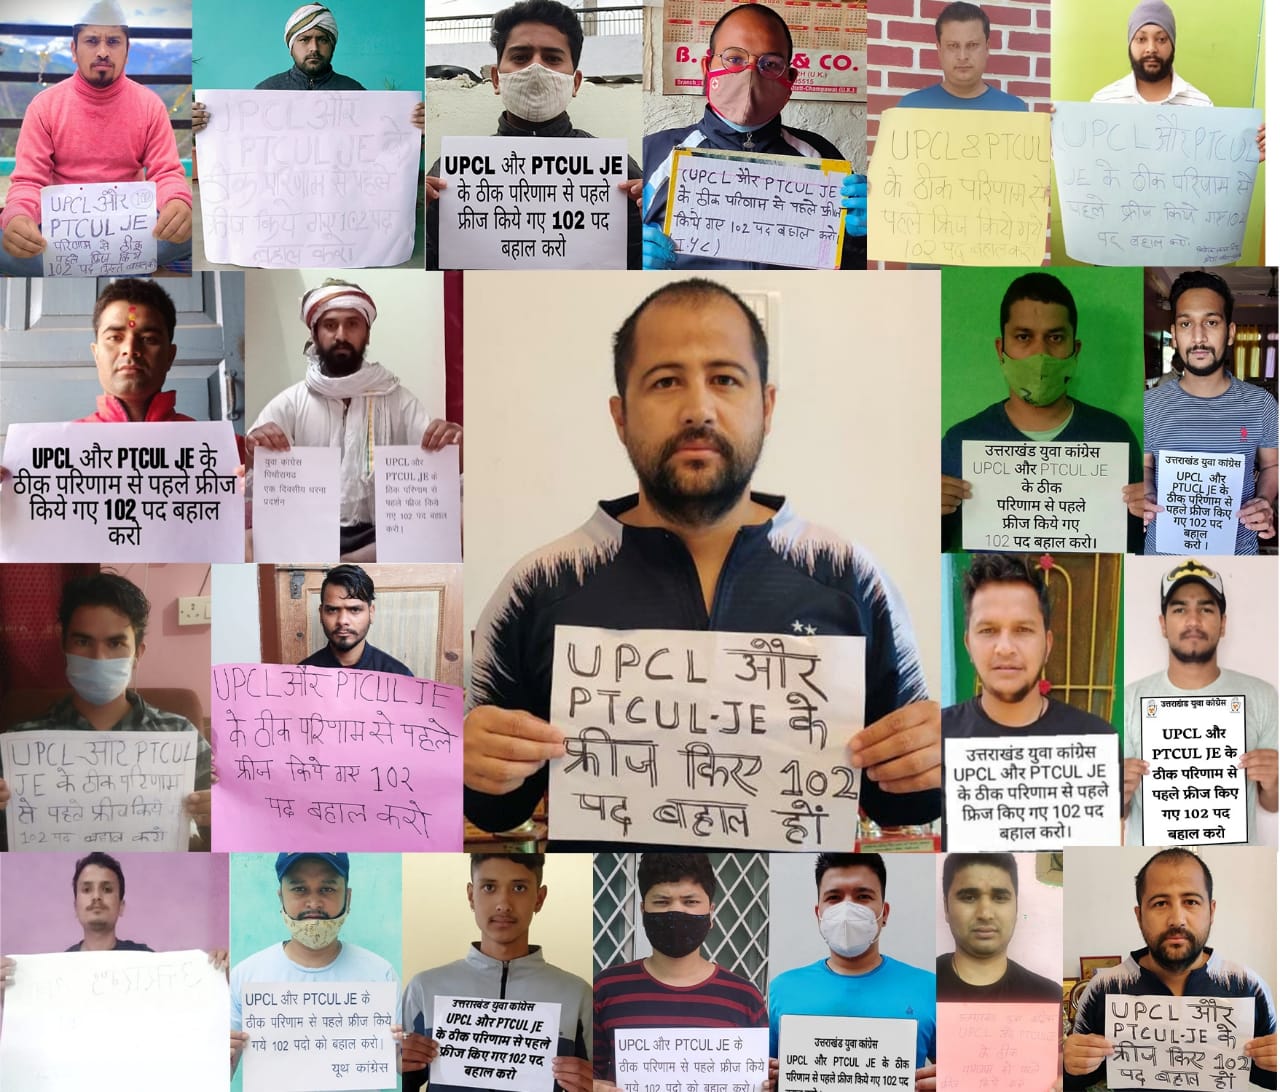 UPCL और
PTCUL JE
परिणाम से ठीक
पहले फ्रीज किये
102 पद
UPCL और
PTCUL JE के
ठीक परिणाम से पहले
फ्रीज किये गए 102 पद
बहाल करो।
UPCL और PTCUL JE
के ठीक परिणाम से पहले
फ्रीज किये गए 102 पद
बहाल करो
B. & CO.
(UPCL और PTCUL JE
के ठीक परिणाम से पहले फ्रीज
किये गए 102 पद बहाल करो।
I.Y.C)
UPCL & PTCUL
के ठीक परिणाम से
पहले फ्रिज किये गये
102 पद बहाल करो।
UPCL और PTCUL
JE के ठीक परिणाम से
पहले फ्रीज किये गए 102
पद बहाल करो।
UPCL और PTCUL JE के
ठीक परिणाम से पहले फ्रीज
किये गए 102 पद बहाल
करो
युवा कांग्रेस
पिथौरागढ
एक दिवसीय धरना
प्रदर्शन
UPCL और
PTCUL JE के
ठीक परिणाम से
पहले फ्रीज किये
गए 102 पद बहाल
करो।
UPCL और
PTCUL-JE के
फ्रीज किए 102
पद बहाल हों
उत्तराखंड युवा कांग्रेस
UPCL और PTCUL JE
के ठीक
परिणाम से पहले
फ्रीज किये गए
102 पद बहाल करो।
उत्तराखंड युवा कांग्रेस
UPCL और
PTUCL JE के
ठीक परिणाम से
पहले फ्रीज किए
गए 102 पद
बहाल
करो ।
UPCL और PTCUL
JE के ठीक परिणाम
से पहले फ्रीज किये
102 पद बहाल करो
UPCL और PTCUL JE
के ठीक परिणाम से पहले
फ्रीज किये गए 102
पद बहाल करो
उत्तराखंड युवा कांग्रेस
UPCL और PTCUL JE
के ठीक परिणाम से पहले
फ्रिज किए गए 102 पद
बहाल करो।
उत्तराखंड युवा कांग्रेस
UPCL और
PTCUL JE के
ठीक परिणाम से
पहले फ्रीज किए
गए 102 पद
बहाल करो
UPCL और PTCUL JE के
ठीक परिणाम से पहले फ्रीज किये
गये 102 पदो को बहाल करो।
यूथ कांग्रेस
उत्तराखंड युवा कांग्रेस
UPCL और PTCUL JE
के ठीक परिणाम से पहले
फ्रीज किए गए 102 पद
बहाल करो
UPCL और PTCUL JE के
ठीक परिणाम से पहले फ्रीज किये
गये 102 पदो को बहाल करो।
उत्तराखंड युवा कांग्रेस
UPCL और PTCUL JE के ठीक
परिणाम से पहले फ्रीज किए गए 102 पद
UPCL और
PTCUL-JE के
फ्रीज किए 102
पद बहाल हों